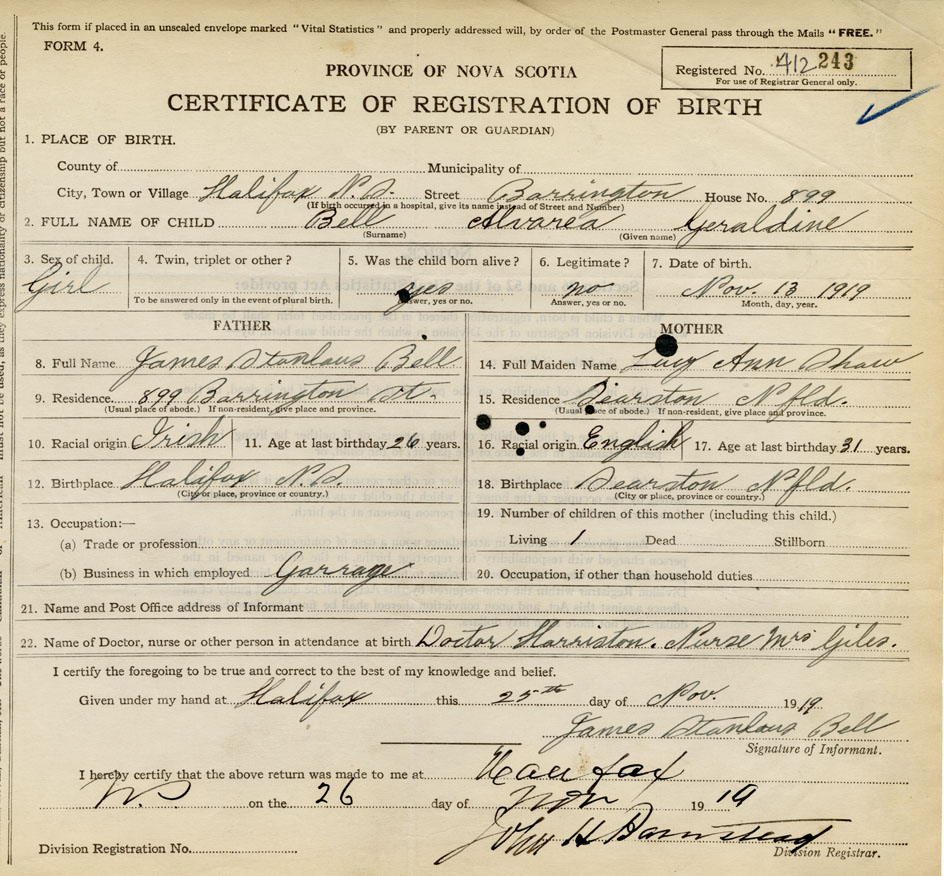 This form if placed in an unsealed envelope marked "Vital Statistics" and properly addressed will, by order of the Postmaster General pass through the Mails "FREE."
FORM 4.
Registered No. 412 243
For use of Registrar General only.
PROVINCE OF NOVA SCOTIA
CERTIFICATE OF REGISTRATION OF BIRTH
(BY PARENT OR GUARDIAN)
1. PLACE OF BIRTH.
County of Municipality of
City, Town or Village Halifax N.S. Street Barrington House No. 899
(If birth occurred in a hospital, give its name instead of Street and Number)
2. FULL NAME OF CHILD Bell Alvarea Geraldine
(Surname) (Given name)
3. Sex of child. 4. Twin, triplet or other? 5. Was the child born alive? 6. Legitimate? 7. Date of birth.
Girl yes no Nov. 13 1919
To be answered only in the event of plural birth. Answer, yes or no. Answer, yes or no. Month, day, year.
FATHER MOTHER
8. Full Name James Stanlaus Bell 14. Full Maiden Name Lucy Ann Shaw
9. Residence. 899 Barrington St. 15. Residence Searston Nfld.
(Usual place of abode.) If non-resident, give place and province. (Usual place of abode.) If non-resident, give place and province.
10. Racial origin Irish 11. Age at last birthday 26 years. 16. Racial origin English 17. Age at last birthday 31 years.
12. Birthplace Halifax N.S. 18. Birthplace Searston Nfld.
(City or place, province or country.) (City or place, province or country.)
13. Occupation:— 19. Number of children of this mother (including this child.)
(a) Trade or profession Living 1 Dead Stillborn
(b) Business in which employed Garrage 20. Occupation, if other than household duties
21. Name and Post Office address of Informant
22. Name of Doctor, nurse or other person in attendance at birth Doctor Harriston. Nurse Mrs Giles.
I certify the foregoing to be true and correct to the best of my knowledge and belief.
Given under my hand at Halifax this 25th day of Nov. 1919
James Stanlaus Bell
Signature of Informant.
I hereby certify that the above return was made to me at Halifax
N.S on the 26 day of Nov 1919
John H Barnstead
Division Registration No. Division Registrar.